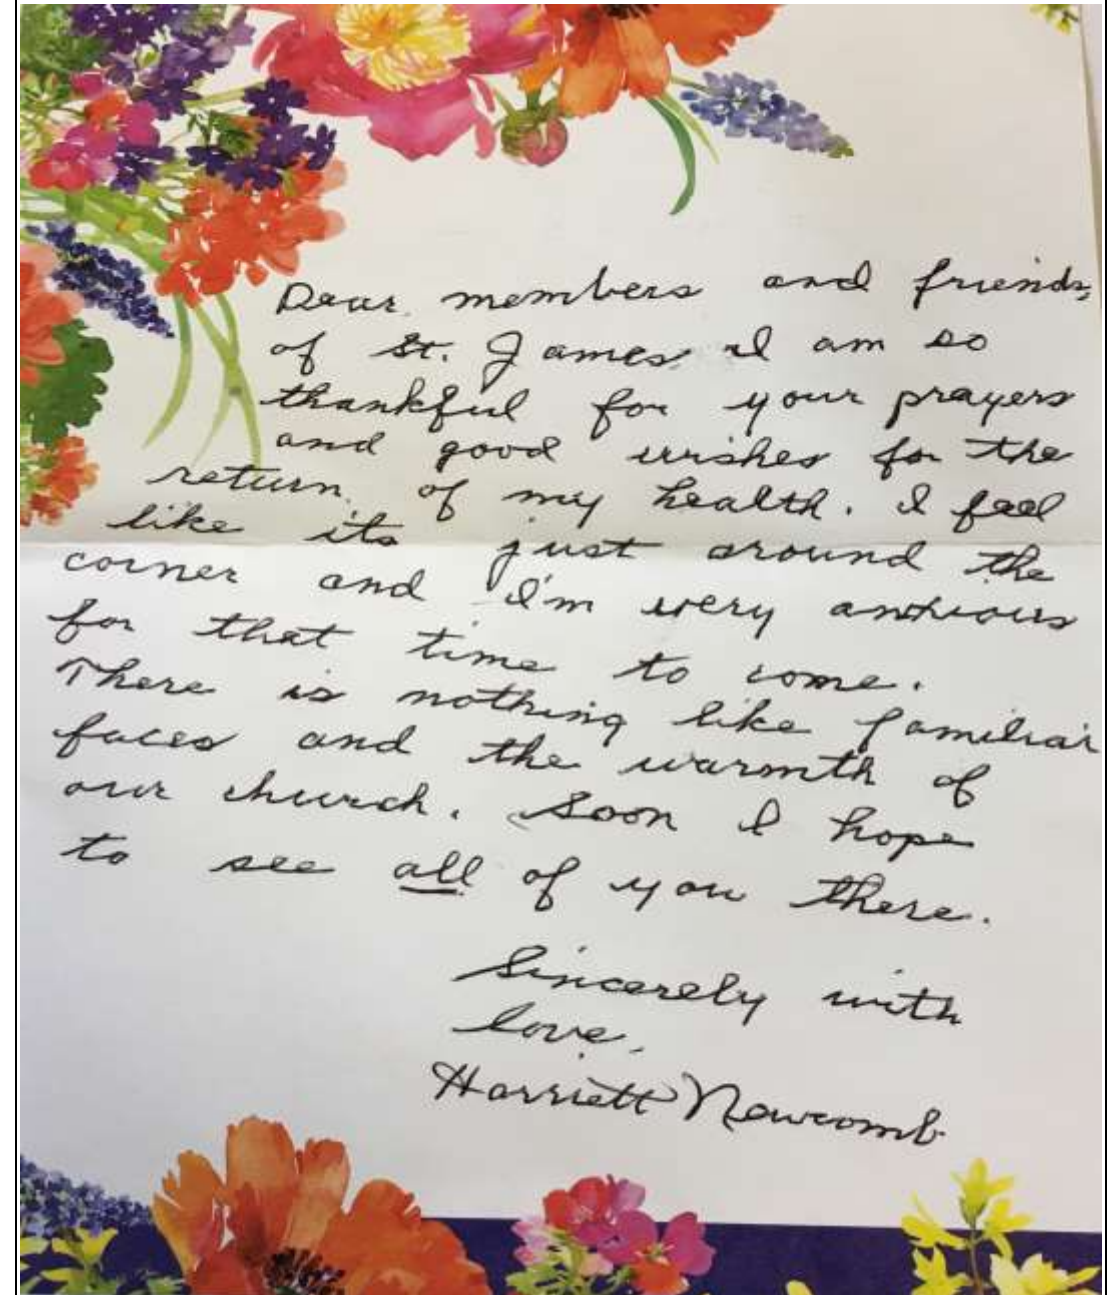 Dear members and friends,
of St. James. I am so
thankful for your prayers
and good wishes for the
return of my health. I feel
like its just around the
corner and I'm very anxious
for that time to come.
There is nothing like familiar
faces and the warmth of
our church. Soon I hope
to see all of you there.
Sincerely with
love,
Harriett Newcomb